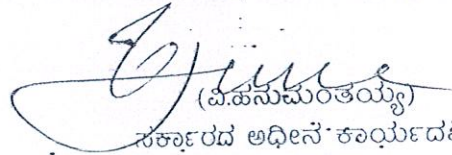 (ವಿ.ಹನುಮಂತಯ್ಯ)
ಸರ್ಕಾರದ ಅಧೀನ ಕಾರ್ಯದ